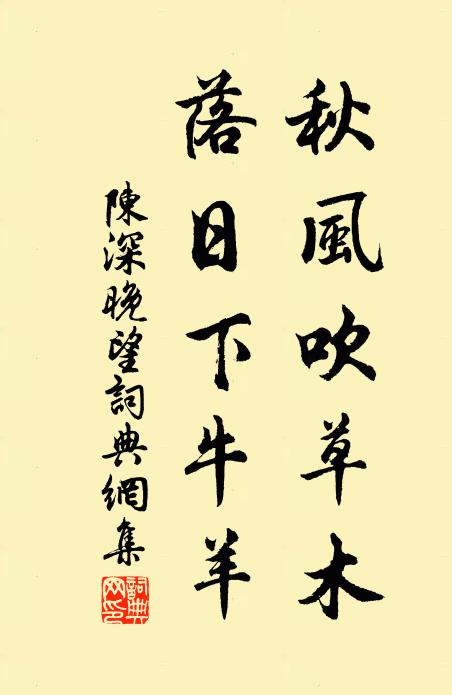 秋風吹草木
落日下牛羊
陳深晚望詞典網集
詞典网印